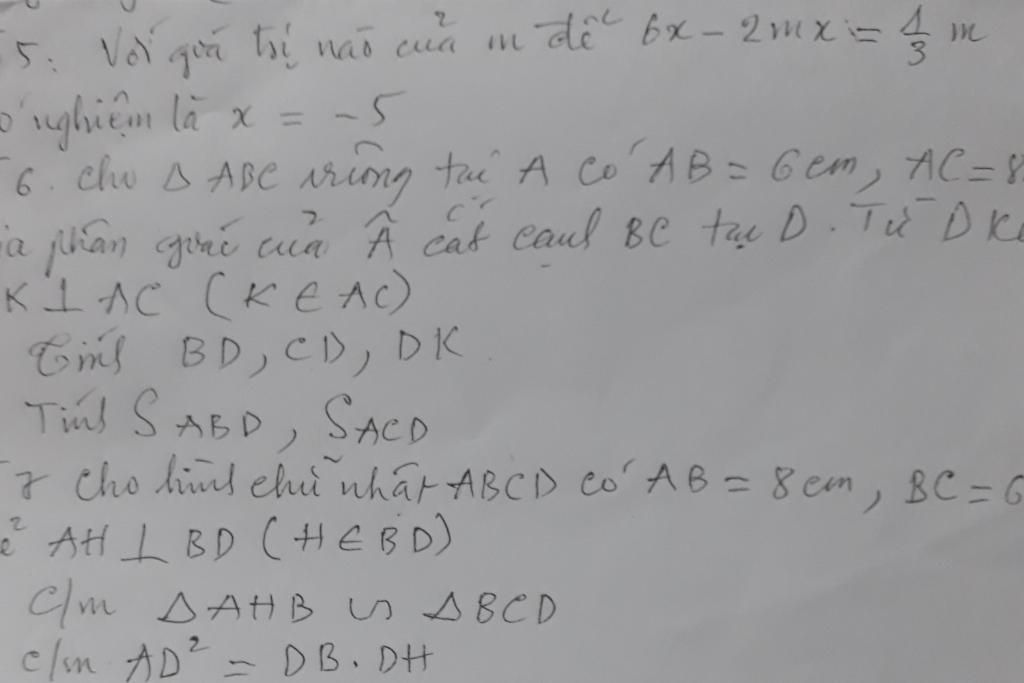 5: Với giá trị nào của m để 6x - 2mx = 1/3 m
ó nghiệm là x = -5
6. Cho Δ ABC vuông tại A có AB = 6cm, AC = 8
ia phân giác của  cắt cạnh BC tại D. Từ D Kẻ
K ⊥ AC (K ∈ AC)
Tính BD, CD, DK
Tính S ABD, S ACD
7 Cho hình chữ nhật ABCD có AB = 8cm, BC = 6
ẻ AH ⊥ BD (H ∈ BD)
C/m Δ AHB ∽ Δ BCD
c/m AD² = DB.DH